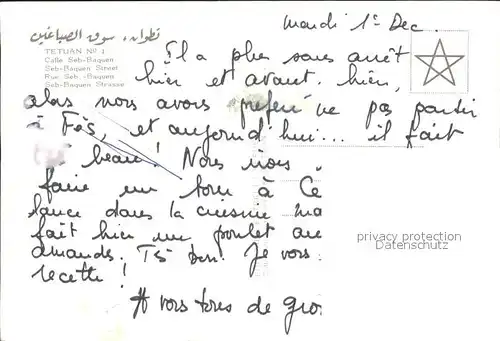 mardi 1er Dec.
تطوان. سوق الصياغين
TETUAN Nº 1
Calle Seb-Baquen
Seb-Baquen Street
Rue Seb-Baquen
Seb-Baquen Strasse
Il a plu sans arrêt
hier et avant. hier,
alors nous avons préféré ne pas partir
à Fès, et aujourd'hui... il fait
beau! Nous
faire un tour à Ce
lance dans la cuisine
fait hier un poulet aux
amandes. Très bon. Je vous
recette!
A vous tous de gro
privacy protection
Datenschutz